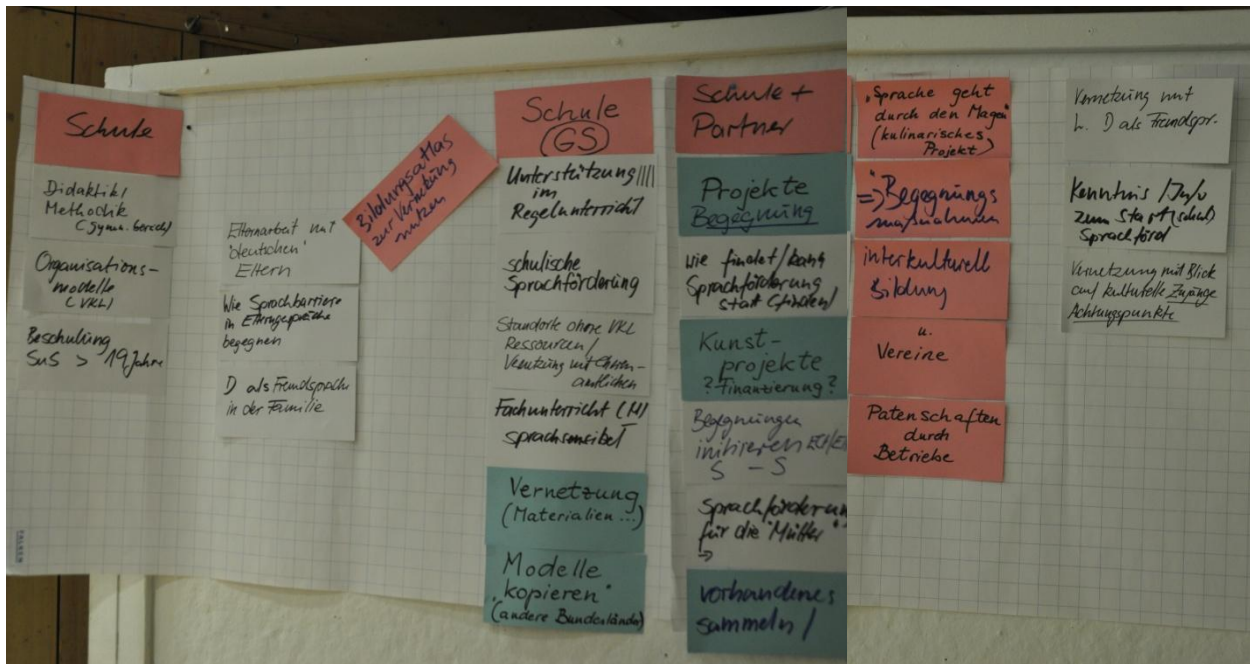 Schule
Didaktik/
Methodik
(gymn. Bereich)
Organisations-
modelle
(VKL)
Beschulung
SuS > 19 Jahre
Elternarbeit mit
"deutschen"
Eltern
Wie Sprachbarriere
in Elterngespräche
begegnen
D als Fremdsprache
in der Familie
Bildungsatlas
zur Vernetzung
nutzen
Schule
(GS)
Unterstützung ||||
im
Regelunterricht
schulische
Sprachförderung
Standorte ohne VKL
Ressourcen/
Vernetzung mit Ehren-
amtlichen
Fachunterricht (M)
sprachsensibel
Vernetzung
(Materialien ...)
Modelle
"kopieren"
(andere Bundesländer)
Schule +
Partner
Projekte
Begegnung
wie findet/kann
Sprachförderung
statt (finden)
Kunst-
projekte
? Finanzierung ?
Begegnungen
initiieren
S - S
Sprachförderun
für die "Mütter"
⇒
vorhandenes
sammeln /
"Sprache geht
durch den Magen"
(kulinarisches
Projekt)
=> Begegnungs
maßnahmen
interkulturell
Bildung
u.
Vereine
Patenschaften
durch
Betriebe
Vernetzung mit
L. D als Fremdspr.
Kenntnis / Info
zum Start (schul)
Sprachförd
Vernetzung mit Blick
auf kulturelle Zugänge
Achtungspunkte